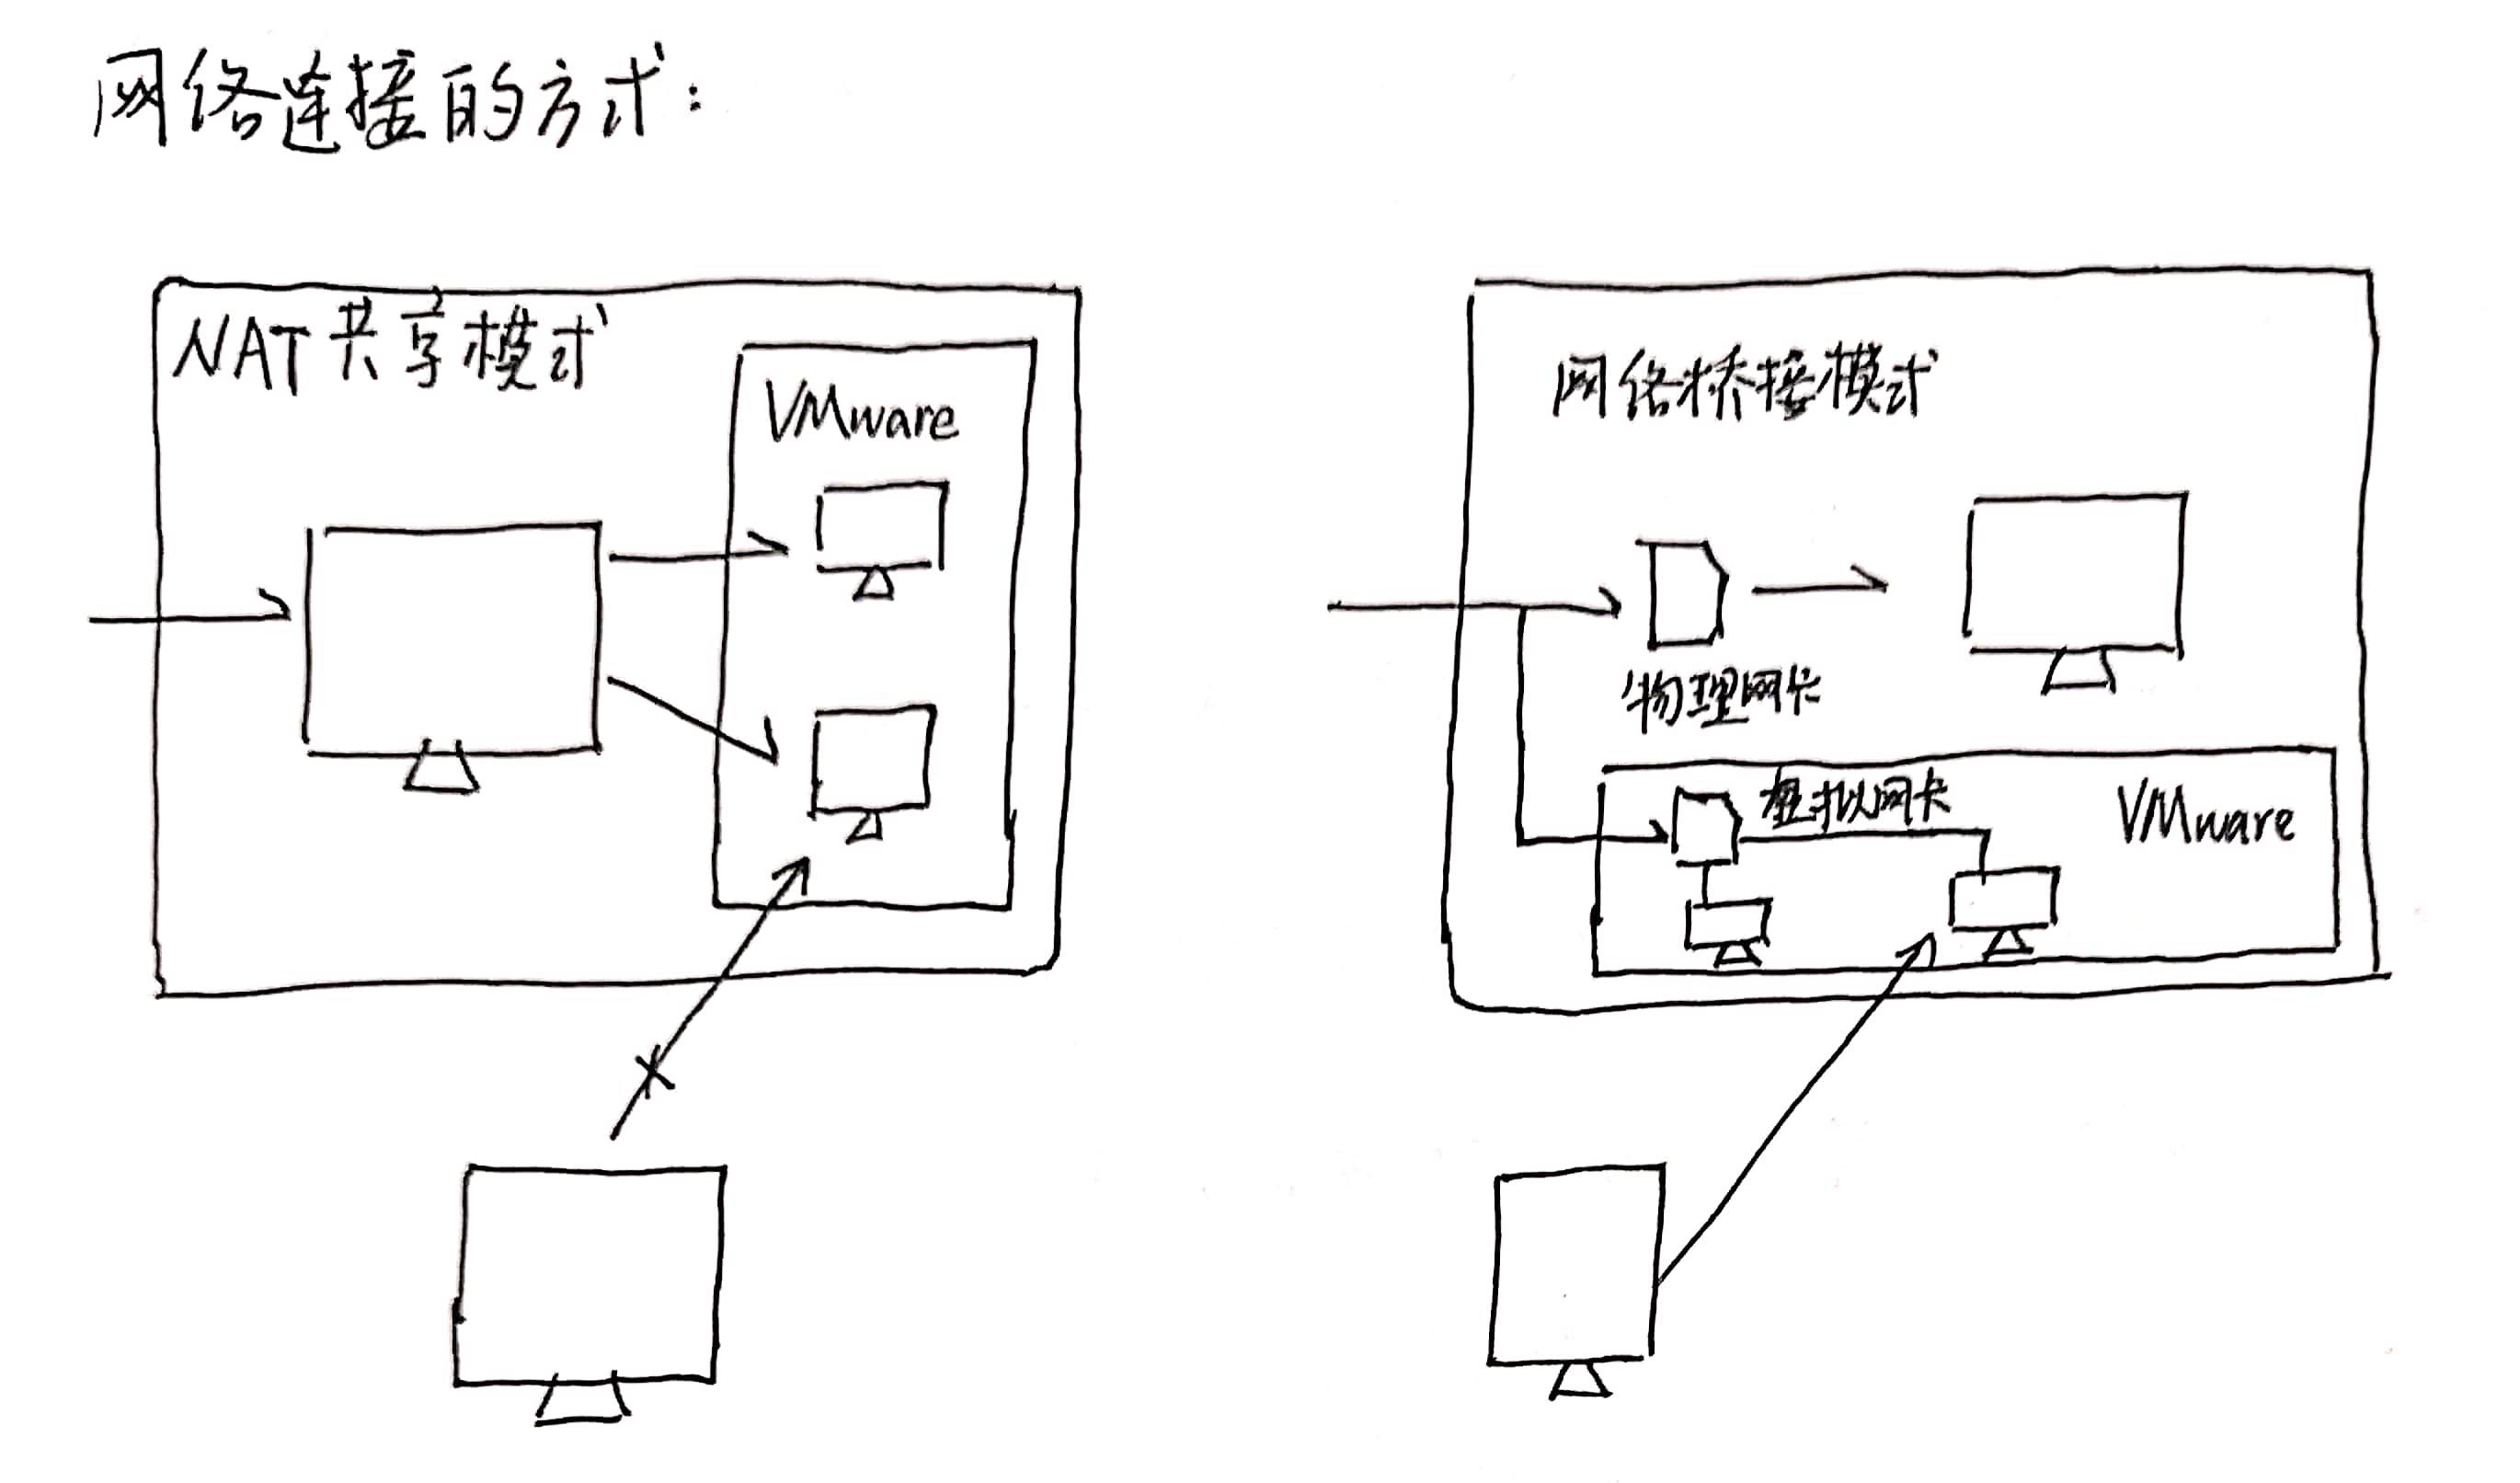 网络连接的方式:
NAT共享模式
VMware
网络桥接模式
物理网卡
虚拟网卡
VMware